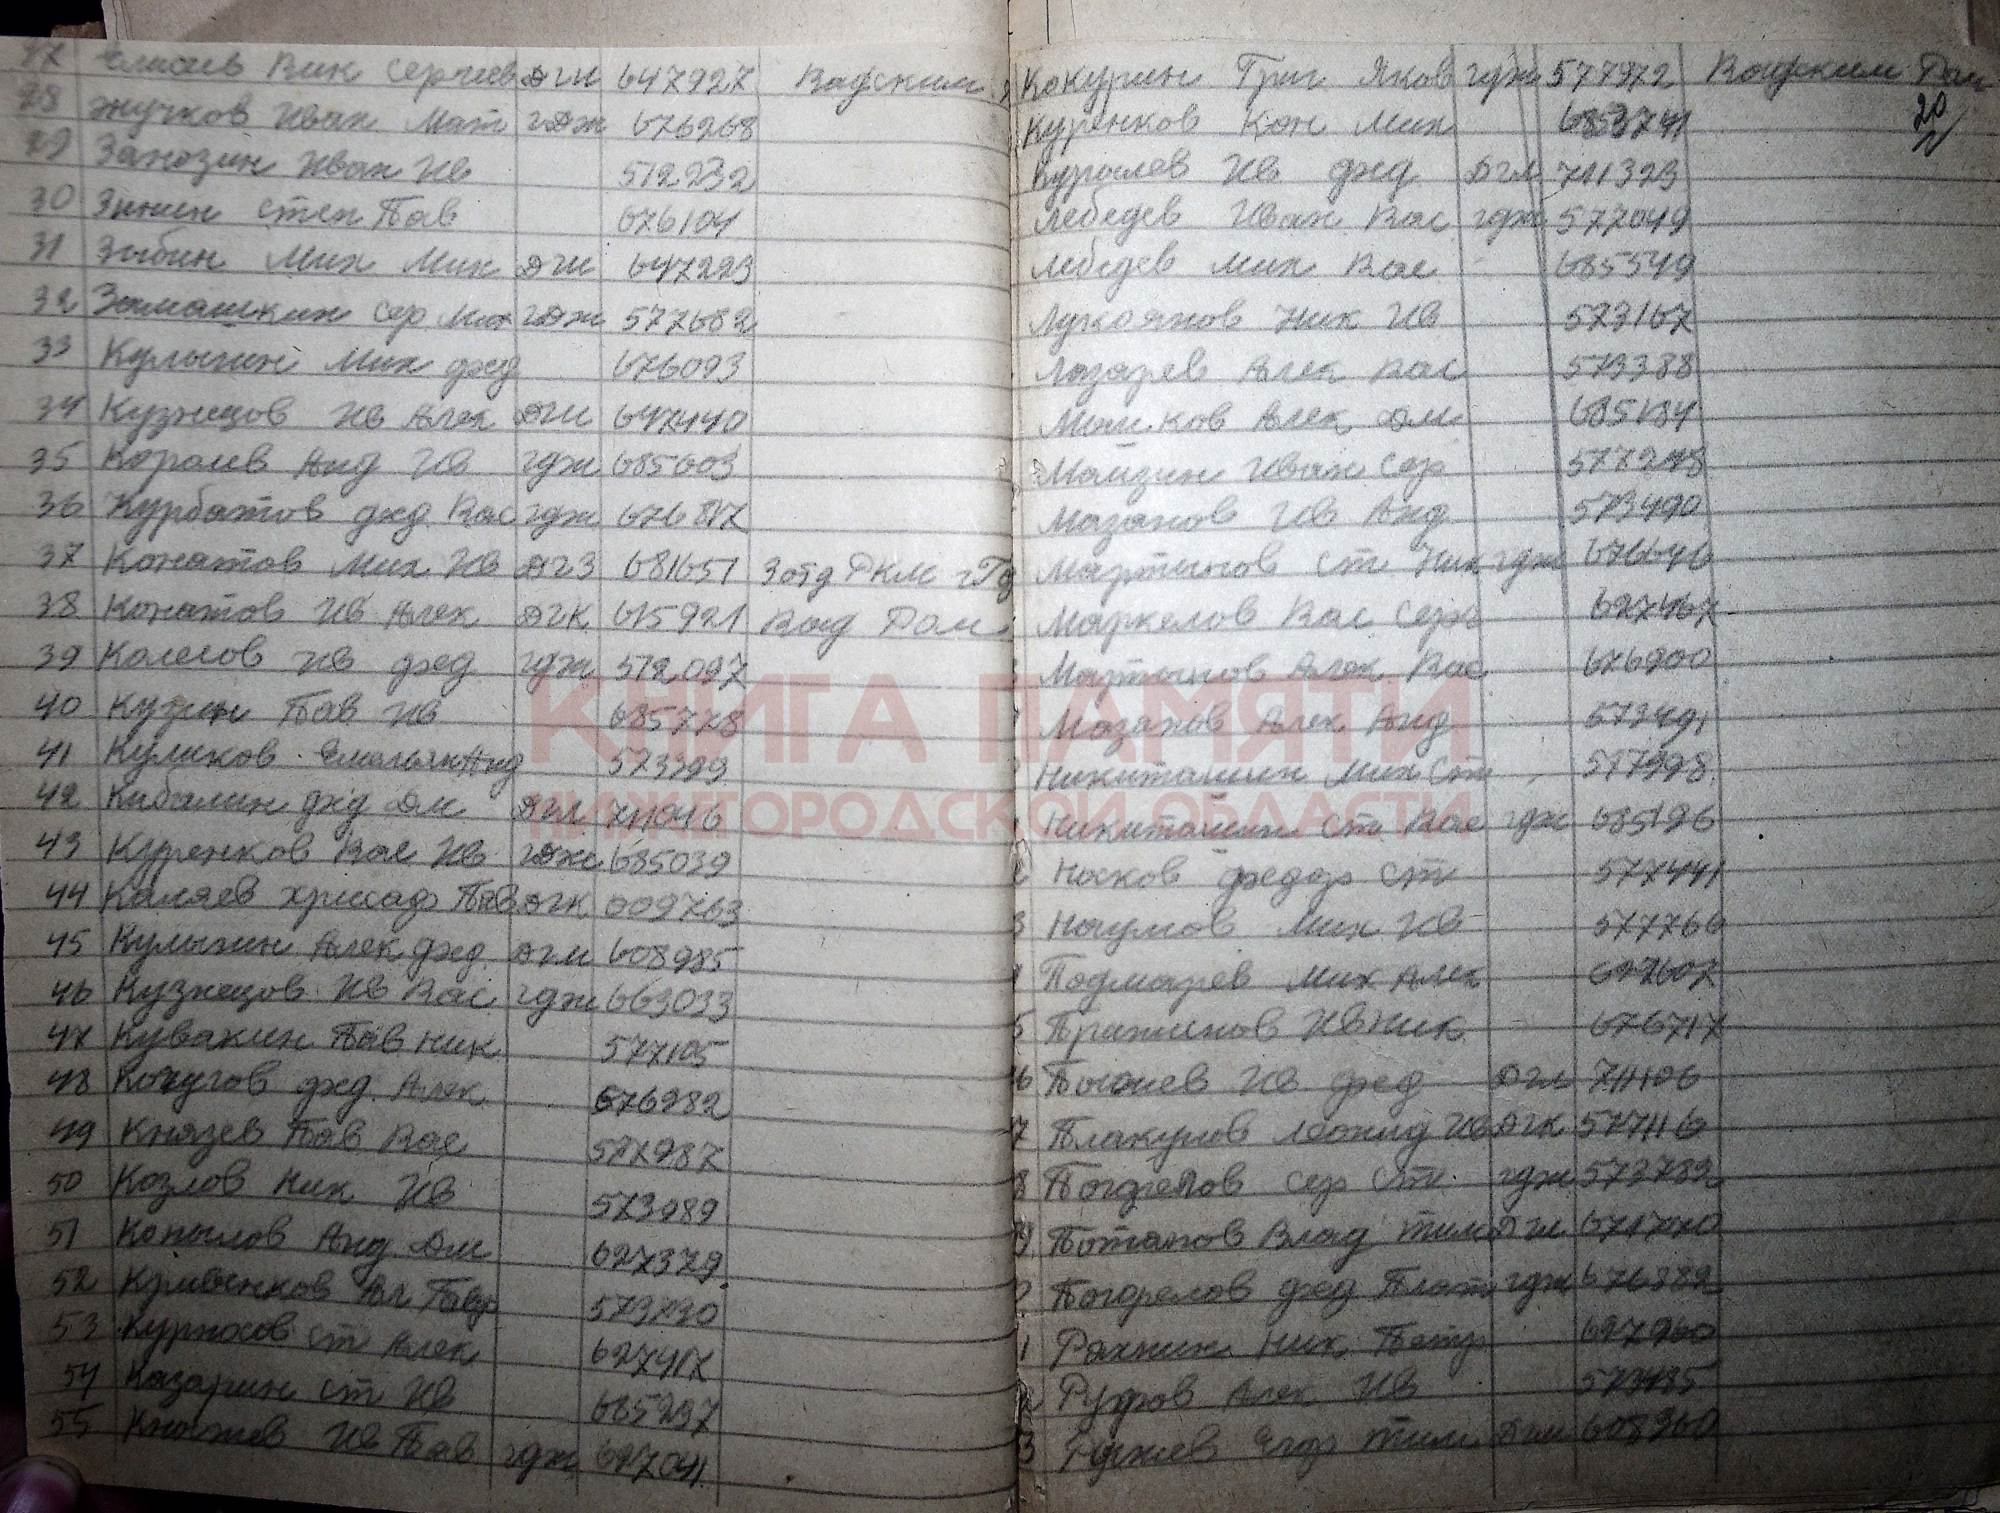 27 Елисеев Вик Сергеев ДГИ 647927 Вадским
28 Жучков Иван Мат ГДЖ 676268
29 Занозин Иван Ив 512232
30 Зинин Степ Пав 676104
31 Зыбин Мих Мих ДГИ 647223
32 Замашкин Сер Мих ГДЖ 577682
33 Кулыгин Мих Фед 676093
34 Кузнецов Ив Алек ДГИ 647440
35 Королев Анд Ив ГДЖ 685603
36 Курбатов Фед Вас ГДЖ 676817
37 Конатов Мих Ив ДГЗ 681651 3 отд РКМ
38 Конатов Ив Алек ДГК 615921 Вад Рай
39 Колесов Ив Фед ГДЖ 512097
40 Кузин Пав Ив 685778
41 Куликов Емельян Анд 573399
42 Кабалин Фед Дм ДГЛ 711046
43 Куренков Вас Ив ГДЖ 685039
44 Каляев Хрисаф Пав ДГК 009763
45 Кулыгин Алек Фед ДГМ 608985
46 Кузнецов Ив Вас ГДЖ 663033
47 Кувакин Пав Ник 577105
48 Кочугов Фед Алек 676982
49 Князев Пав Вас 577987
50 Козлов Ник Ив 573989
51 Копылов Анд Дм 627379
52 573790
53 Курносов Ст Алек 627417
54 Казарин Ст Ив 685297
55 Ив Пав ГДЖ 627041
Кокурин Григ Яков ГДЖ 577972 Вадским Рай
20
Куренков Кон Мих
Ив Фед ДГЛ 711323
Лебедев Иван Вас ГДЖ 577049
Лебедев Мих Вас 685549
Лукоянов Ник Ив 573167
Лазарев Алек Вас 573388
Алек Дм 685184
Иван Сер 577248
Мазанов Ив Анд 573490
Мартынов Ст Ник ГДЖ 676646
Маркелов Вас Серг 627467
Мартынов Алек Вас 676900
Мазанов Алек Анд 573491
Никиташин Мих Ст 577998
Никиташин Ст Вас ГДЖ 685196
Носков Федор Ст 577441
3 Наумов Мих Ив 577766
Подмарев Мих Алек 627607
5 Пражинов Ив Ник 676717
6 Ив Фед ДГЛ 711106
7 Плакунов Леонид Ив ДГК 577116
8 Погорелов Сер Ст ГДЖ 573783
9 Потапов Влад Тим ДГЛ
Погорелов Фед Плат ГДЖ 676889
1 Рахнин Ник Петр 627960
2 Алек Ив 573485
3 Егор Тим ДГМ 608960
КНИГА ПАМЯТИ
НИЖЕГОРОДСКОЙ ОБЛАСТИ